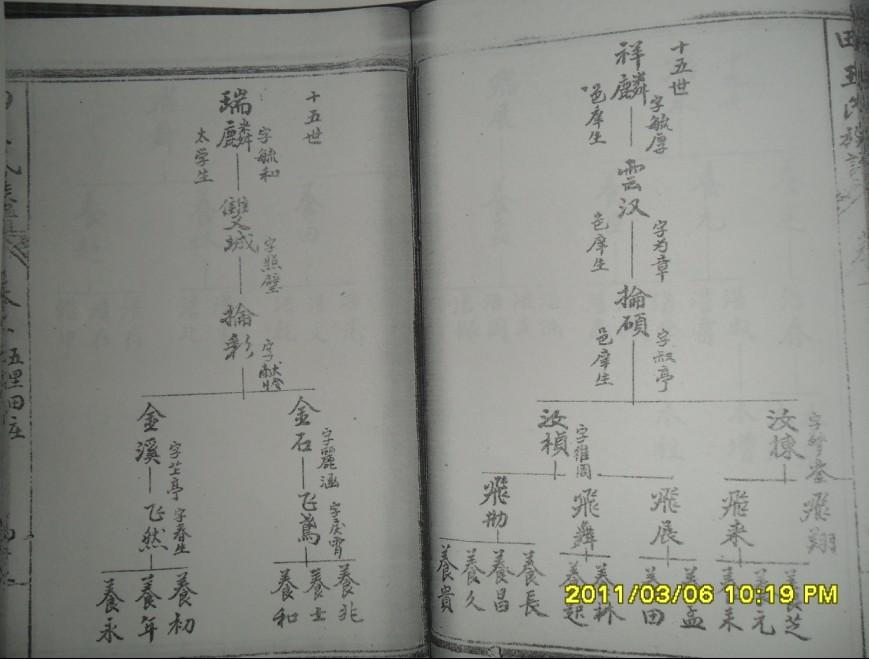 十五世
祥麟
字毓厚
邑庠生
雲汉
字为章
邑庠生
掄碩
字叔亭
邑庠生
汝棟
汝楨
字維周
飛翔
飛来
飛展
飛舞
飛
養芝
養元
養来
養孟
養田
養林
養廷
養長
養昌
養久
養貴
十五世
瑞麟
字毓和
太学生
雙城
字照璧
掄彩
字献
金石
字麗涵
金溪
字芷亭
飞鸢
字戾霄
飞然
字春生
養兆
養士
養和
養初
養年
養永
五里田庄
2011/03/06 10:19 PM